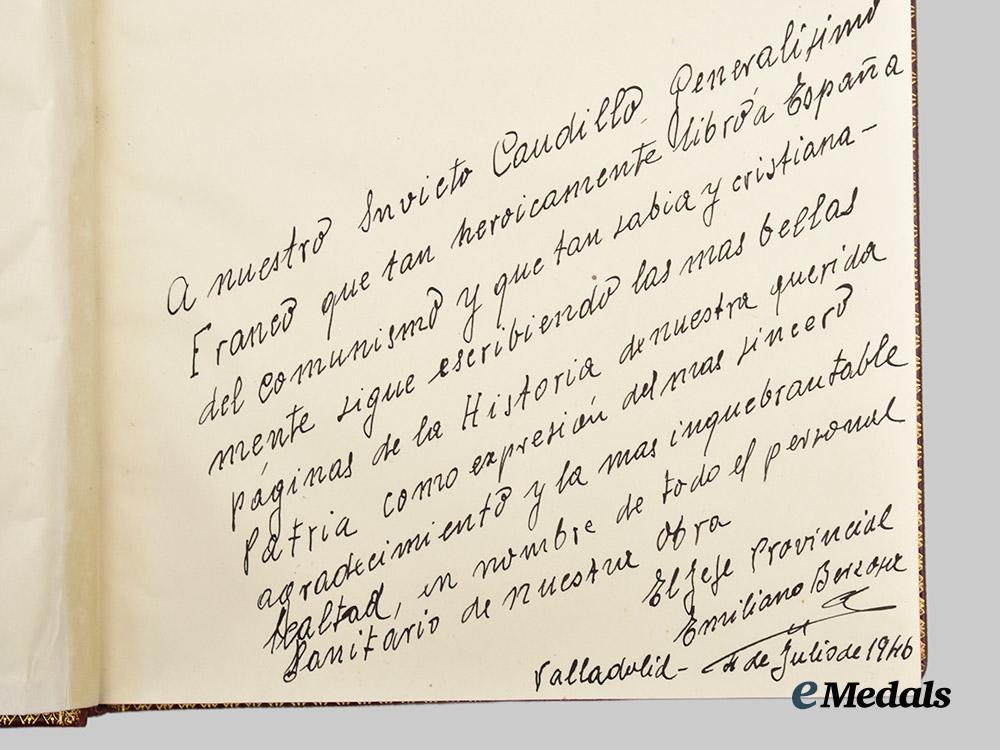 A nuestro Invicto Caudillo Generalisimo
Franco que tan heroicamente libró a España
del comunismo y que tan sabia y cristiana-
mente sigue escribiendo las mas bellas
páginas de la Historia de nuestra querida
Patria como expresión del mas sincero
agradecimiento y la mas inquebrantable
lealtad, en nombre de todo el personal
Sanitario de nuestra Obra
El Jefe Provincial
Emiliano
Valladolid - de Julio de 1946
eMedals